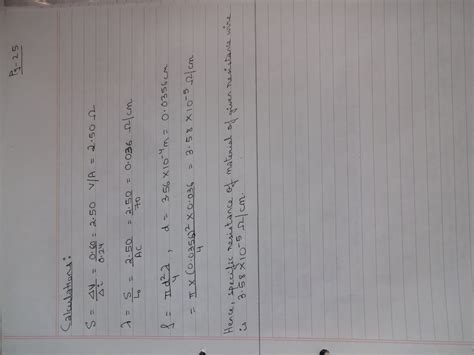 Pg-25
Calculations:
S = ΔV/Δi = 0.60/0.24 = 2.50 V/A = 2.50 Ω
λ = S/L₀ = 2.50/AC = 2.50/70 = 0.036 Ω/cm
ρ = πd²λ/4 , d = 3.56 × 10⁻⁴m = 0.0356cm
= π × (0.0356)² × 0.036/4 = 3.58 × 10⁻⁵ Ω/cm
Hence, specific resistance of material of given resistance wire
is 3.58×10⁻⁵ Ω/cm.